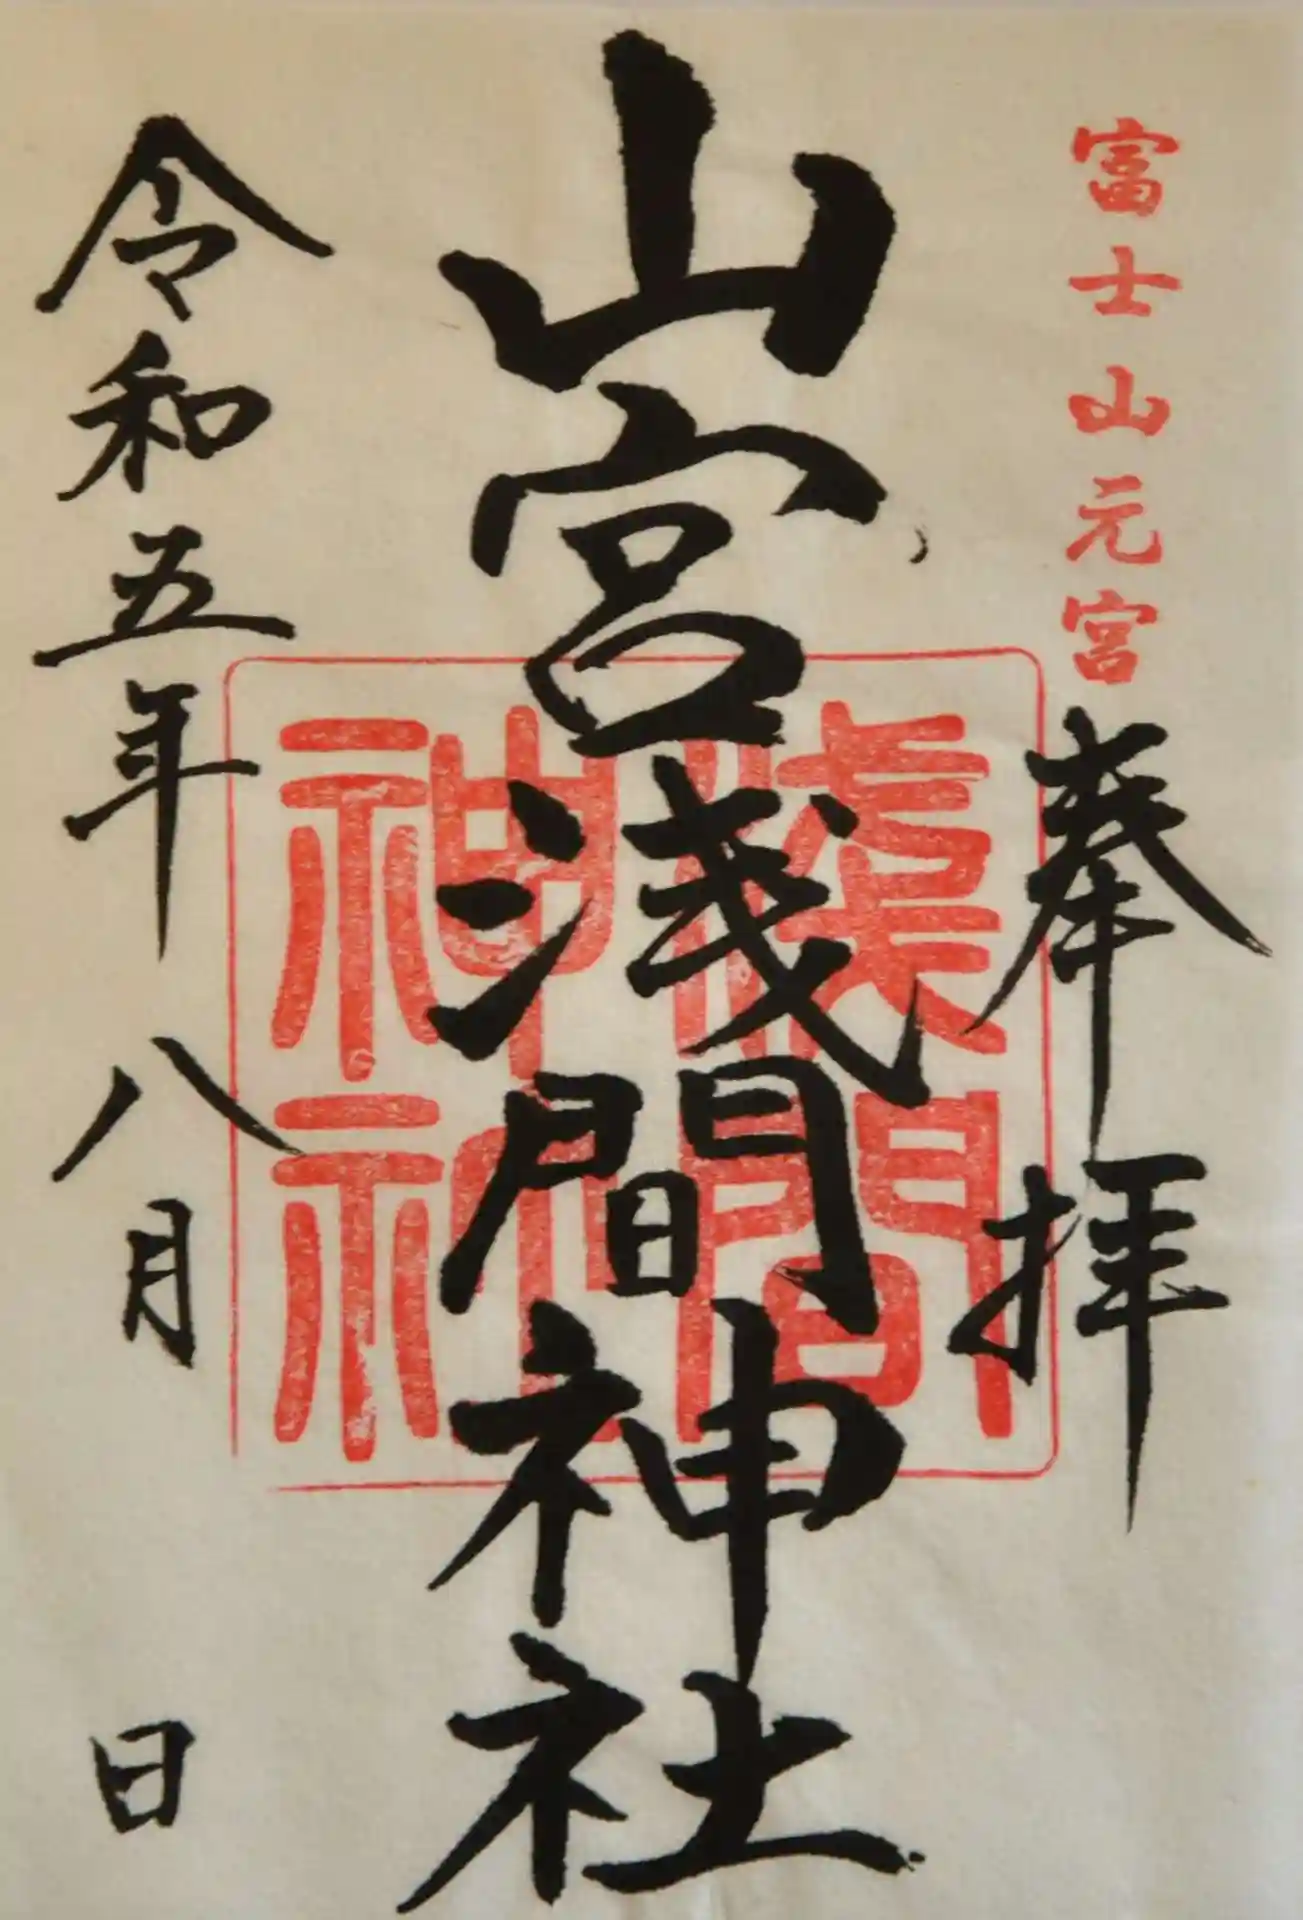 富士山元宮
奉拝
山宮浅間神社
淺間
神社
令和五年八月 日